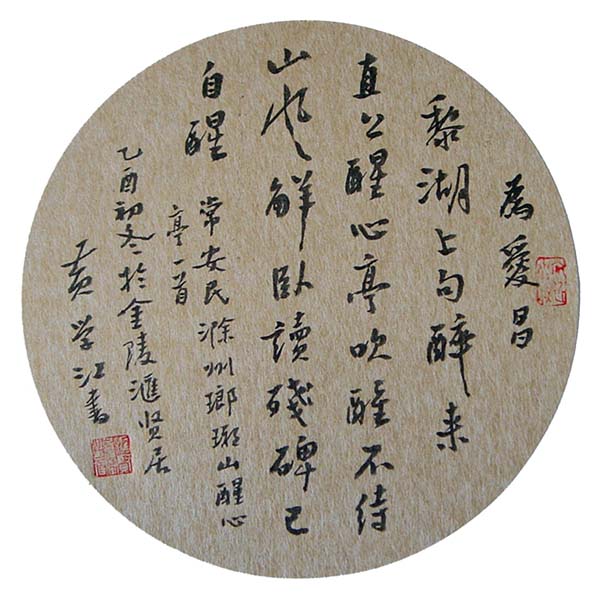 為愛昌
黎湖上句醉来
直公醒心亭吹醒不待
山风解卧讀殘碑已
自醒
常安民滁州瑯琊山醒心
亭一首
乙酉初冬於金陵滙贤居
黄学江書